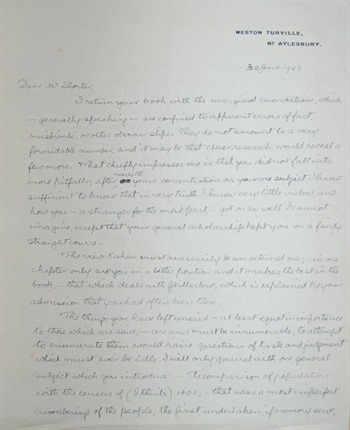 WESTON TURVILLE,
Nr AYLESBURY.
30 June 1906
Dear Mr Shorter,
I return your book with the marginal emendations, which
— generally speaking — are confined to apparent errors of fact,
misprints, or other obvious slips. They do not amount to a very
formidable number, and it may be that closer research would reveal a
few more. What chiefly impresses me is that you did not fall into
more pitfalls; after nearly 15 years' concentration on your subject I know
sufficient to know that in very truth I know very little indeed, and
how you — a stranger for the most part — got on so well I cannot
imagine, except that your general scholarship kept you on a fairly
straight course.
The area taken must necessarily be an external one; — in one
chapter only are you in a better position and it makes the best in the
book, — that which deals with , which is explained by your
admission that you had often been there.
The things you have left unsaid — at least equal in importance
to those which are said, — are and must be innumerable; to attempt
to enumerate them would raise questions of taste and judgment
which must ever be idle. I will only quarrel with one general
subject which you introduce: — The comparison of population
with the census of (I think) 1801; — that was a most imperfect
numbering of the people, the first undertaken, if memory serves,